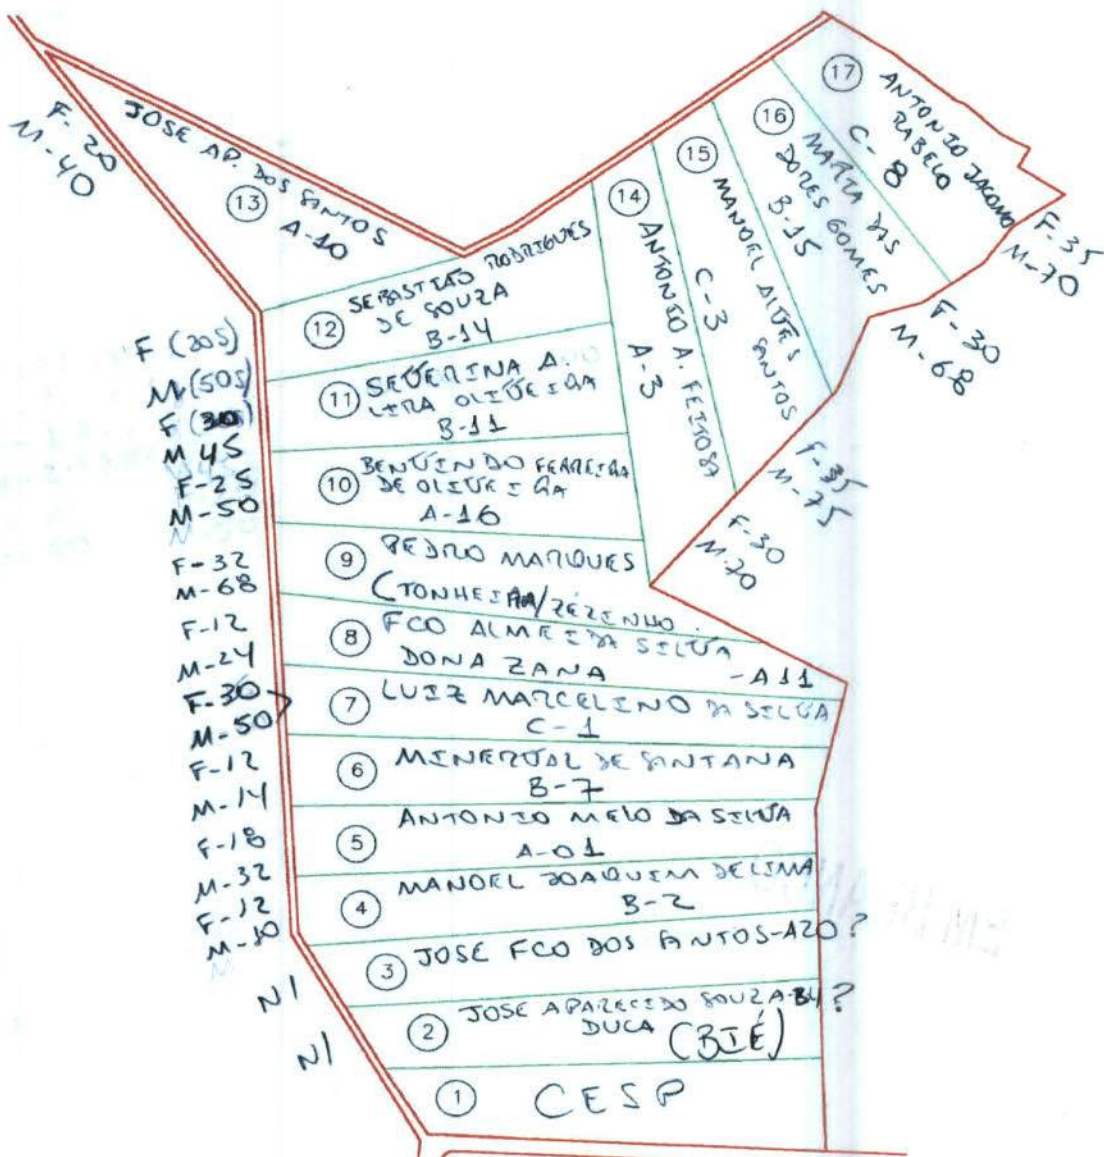 17
ANTONIO JACOMO
RABELO
C-8
F-35
M-70
16
MARIA DAS
DORES GOMES
B-15
F-30
M-68
15
MANOEL ALVES
SANTOS
C-3
F-35
M-75
14
ANTONIO A. FEITOSA
A-3
F-30
M-70
JOSE AP. DOS SANTOS
13
A-10
F-20
M-40
12
SEBASTIÃO RODRIGUES
DE SOUZA
B-14
F (20S)
M (50S)
11
SEVERINA A.
LIRA OLIVEIRA
B-11
F (30)
M 45
10
BENVINDO FERREIRA
DE OLIVEIRA
A-16
F-25
M-50
9
PEDRO MARQUES
(TONHEIRA/ZÉZINHO
F-32
M-68
8
FCO ALMEIDA SILVA
DONA ZANA
-A11
F-12
M-24
7
LUIZ MARCELINO DA SILVA
C-1
F-30
M-50
6
MINERVAL DE SANTANA
B-7
F-12
M-14
5
ANTONIO MELO DA SILVA
A-01
F-18
M-32
4
MANOEL JOAQUIM DE LIMA
B-2
F-12
M-10
3
JOSE FCO DOS SANTOS-A20?
NI
2
JOSE APARECIDO SOUZA ?
DUCA
(BIÉ)
NI
1
CESP